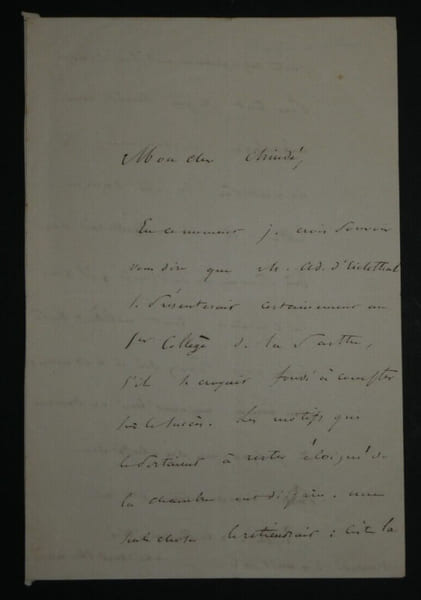 Mon cher
En ce moment je crois pouvoir
vous dire que M. Ad. d'Eichthal
se présenterait certainement au
1er Collège de la Sarthe,
s'il se croyait fondé à compter
sur le succès. Les motifs que
le portaient à rester éloigné de
la chambre ont disparu. une
seule chose le retiendrait : c'est la